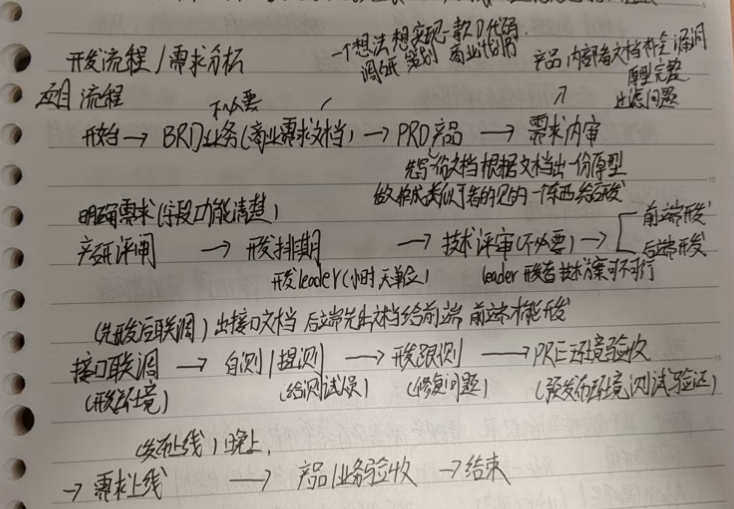 一个想法想实现一款D代码.
开发流程/需求分析
调研 策划 商业计划
产品内部看文档补全漏洞
原型完整
过滤问题
项目流程
不必要
开始→BRD业务(商业需求文档)→PRD产品→需求内审
先写一份文档根据文档出一份原型
做成类似可看的见的一个东西给研发
明确需求(字段功能清楚)
产研评审→开发排期→技术评审(不必要)→
前端开发
后端开发
开发leader(小时 天单位)
leader 开发看技术方案可不可行
(先开发后联调)出接口文档 后端先出文档给前端 前端才能开发
接口联调→自测/提测→开发跟测→PRE环境验收
(开发环境)(给测试员)(修复问题)(预发布环境,测试验证)
(发布上线)晚上,
→需求上线→产品/业务验收→结束